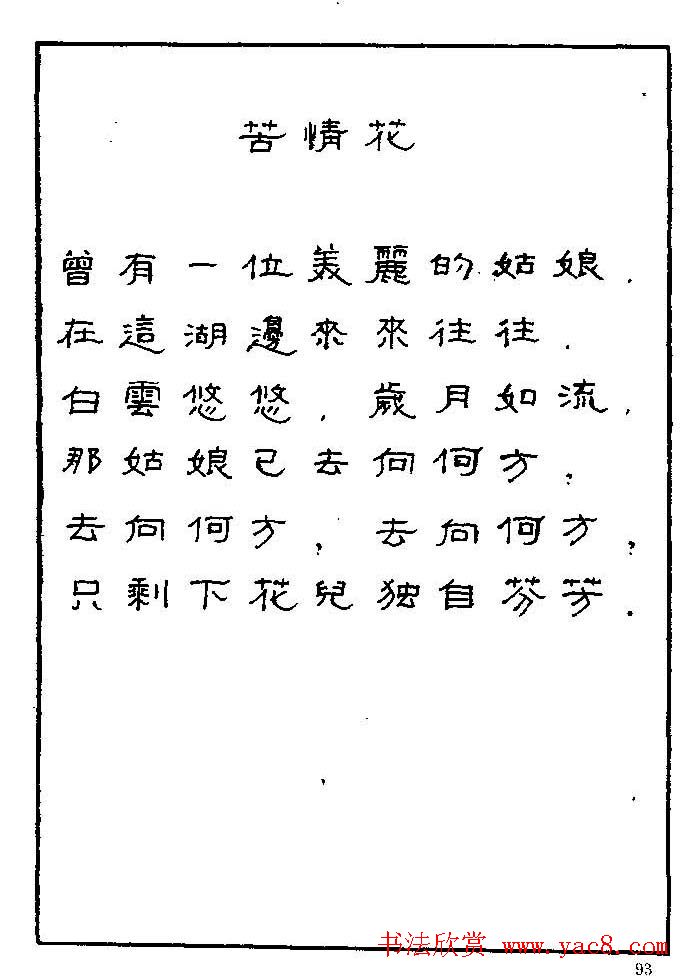 苦情花
曾有一位美麗的姑娘.
在這湖邊來來往往.
白雲悠悠,歲月如流,
那姑娘已去向何方?
去向何方,去向何方?
只剩下花兒独自芬芳.
书法欣赏 www.yac8.com
93